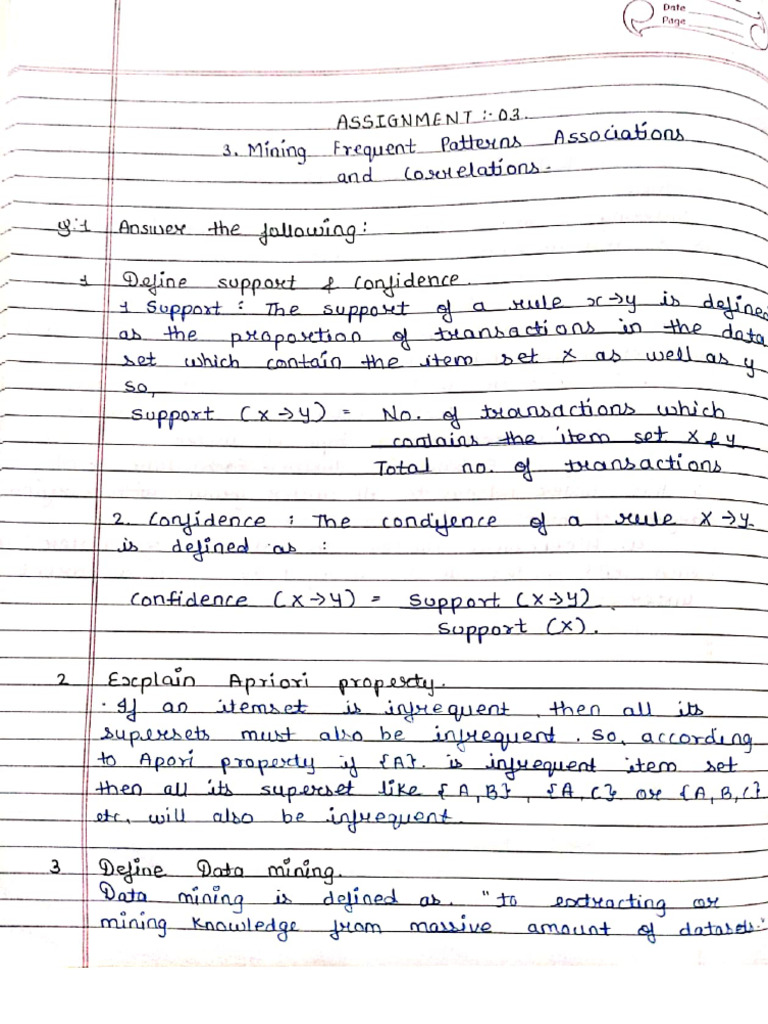 Date
Page
ASSIGNMENT :- 03.
3. Mining Frequent Patterns Associations
and Correlations.
Q.1 Answer the following:
1 Define support & confidence.
1 Support : The support of a rule x→y is defined
as the proportion of transactions in the data
set which contain the item set X as well as y
so,
Support (X→Y) = No. of transactions which
contains the item set X & y.
Total no. of transactions
2. Confidence : The condifence of a rule X→y.
is defined as :
Confidence (X→Y) = Support (X→Y).
Support (X).
2 Explain Apriori property.
· If an itemset is infrequent, then all its
supersets must also be infrequent. So, according
to Apori property if {A}. is infrequent item set
then all its superset like {A,B}, {A,C} or {A,B,C}
etc, will also be infrequent.
3 Define Data mining.
Data mining is defined as. "to extracting or
mining knowledge from massive amount of datasets."